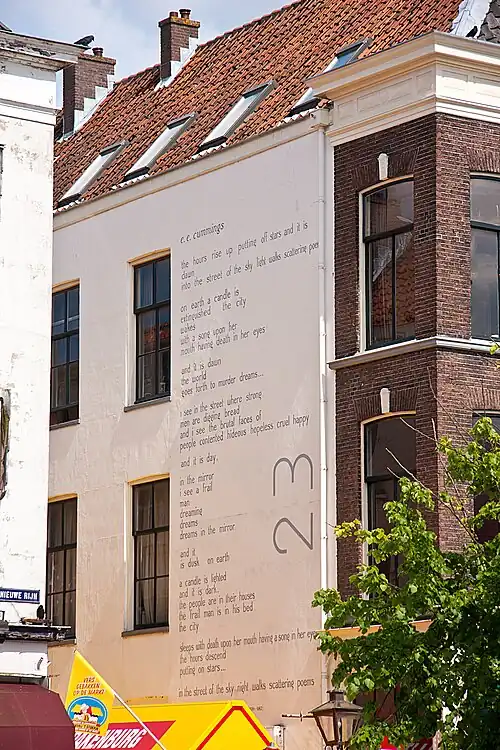 e. e. cummings
the hours rise up putting off stars and it is
dawn
into the street of the sky light walks scattering poems
on earth a candle is
extinguished the city
wakes
with a song upon her
mouth having death in her eyes
and it is dawn
the world
goes forth to murder dreams...
i see in the street where strong
men are digging bread
and i see the brutal faces of
people contented hideous hopeless cruel happy
and it is day,
in the mirror
i see a frail
man
dreaming
dreams
dreams in the mirror
and it
is dusk on earth
a candle is lighted
and it is dark.
the people are in their houses
the frail man is in his bed
the city
sleeps with death upon her mouth having a song in her eyes
the hours descend
putting on stars...
in the street of the sky night walks scattering poems
23
NIEUWE RIJN
VERS
GEBAKKEN
OP DE MARKT